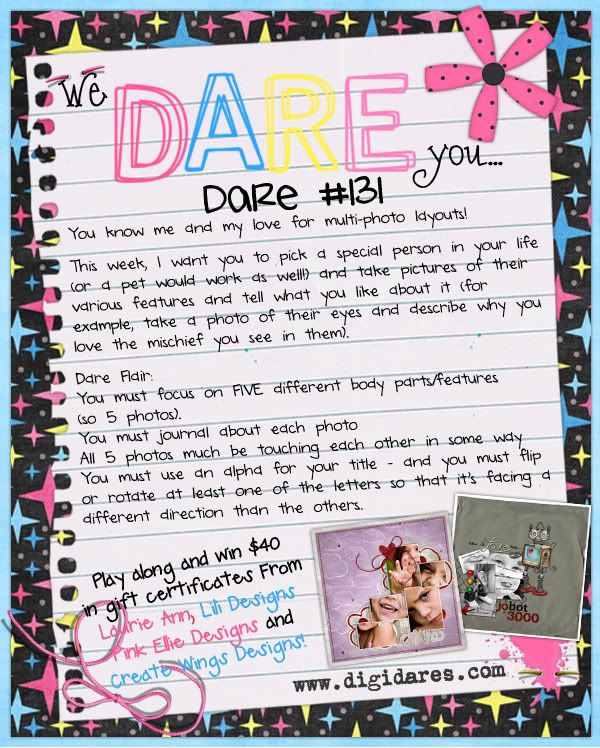 We
DARE
you...
Dare #131
You know me and my love for multi-photo layouts!
This week, I want you to pick a special person in your life
(or a pet would work as well!!) and take pictures of their
various features and tell what you like about it (for
example, take a photo of their eyes and describe why you
love the mischief you see in them).
Dare Flair:
You must focus on FIVE different body parts/features
(so 5 photos).
You must journal about each photo
All 5 photos much be touching each other in some way
You must use an alpha for your title - and you must flip
or rotate at least one of the letters so that it's facing a
different direction than the others.
Play along and win $40
in gift certificates from
Laurie Ann, Lili Designs
Pink Ellie Designs and
Create Wings Designs!
jobot
3000
www.digidares.com